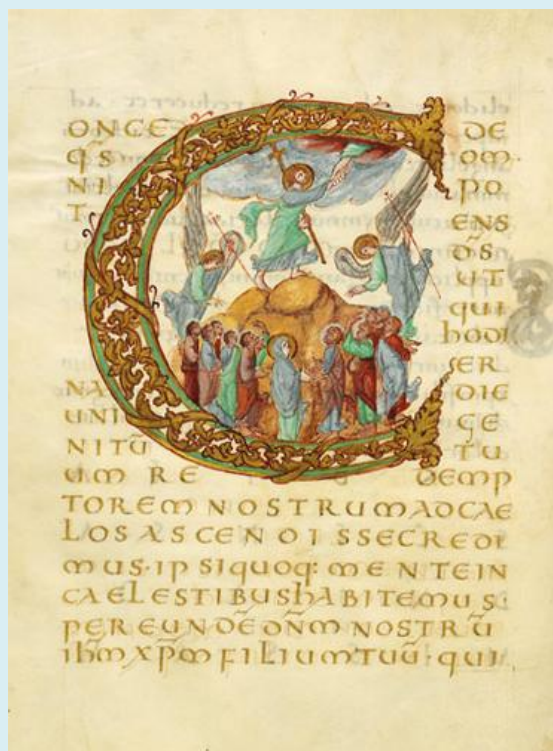 CONCE DE
q̄S OM·
NI PO
T ENS
D̄S
UT
qui
hodi
ER
NA DIE
UNI GE
NITŪ TU
UM RE DEMP
TOREM NOSTRUMADCAE
LOSASCENDISSECREDI
MUS·IPSIQUOQ: MENTEIN
CAELESTIBUShABITEMUS·
PEREUNDĒ DN̄M NOSTRŪ
ihM̄ XPM̄ FILIUMTUŪ·QUI